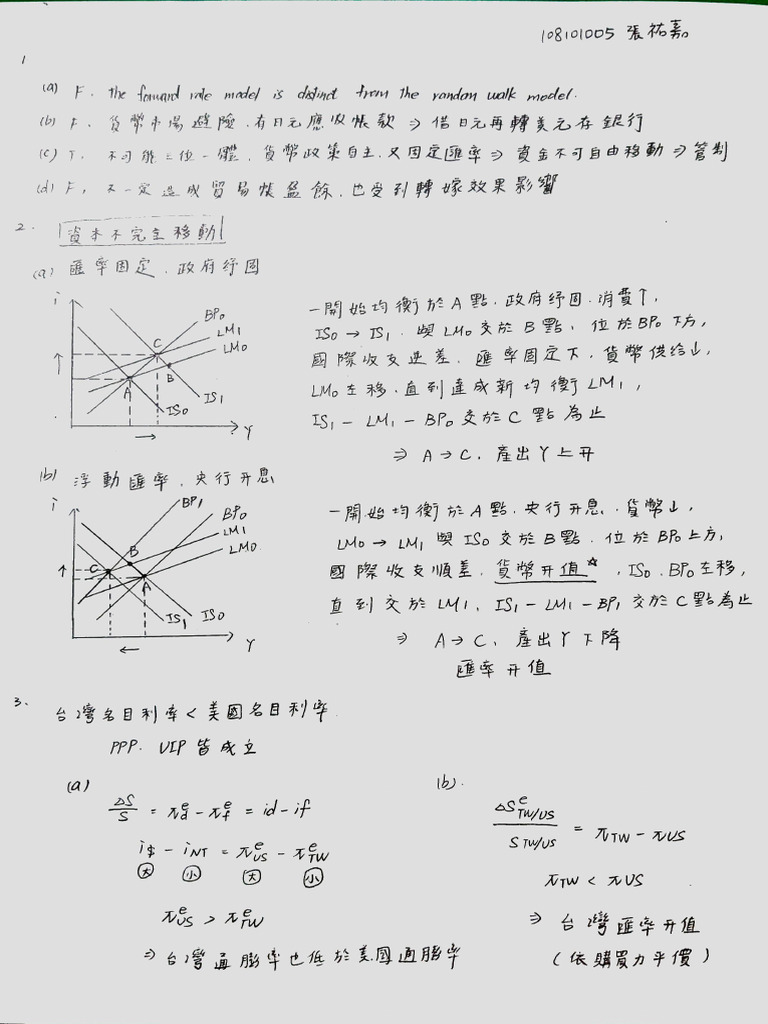 108101005 張祐嘉
1
(a) F. the forward rate model is distinct from the random walk model.
(b) F. 貨幣市場避險. 有日元應收帳款 ⇒ 借日元再轉美元存銀行
(c) T. 不可能三位一體. 貨幣政策自主. 又固定匯率 ⇒ 資金不可自由移動 ⇒ 管制
(d) F, 不一定造成貿易帳盈餘. 也受到轉嫁效果影響
2. 資本不完全移動
(a) 匯率固定. 政府紓困
i
BP0
LM1
LM0
C
B
A
IS1
IS0
Y
一開始均衡於A點. 政府紓困. 消費↑,
IS0 → IS1. 與LM0交於B點. 位於BP0下方,
國際收支逆差. 匯率固定下. 貨幣供給↓,
LM0左移. 直到達成新均衡LM1,
IS1 - LM1 - BP0 交於C點為止
⇒ A→C. 產出Y上升
(b) 浮動匯率. 央行升息
i
BP1
BP0
LM1
LM0
B
C
A
IS1
IS0
Y
一開始均衡於A點. 央行升息. 貨幣↓,
LM0→LM1 與IS0交於B點. 位於BP0上方,
國際收支順差. 貨幣升值☆, IS0. BP0左移,
直到交於LM1. IS1-LM1-BP1 交於C點為止
⇒ A→C. 產出Y下降
匯率升值
3. 台灣名目利率 < 美國名目利率.
PPP. UIP 皆成立
(a)
ΔS/S = π^e_d - π^e_f = id - if
i$ - iNT = π^e_US - π^e_TW
大 小 大 小
π^e_US > π^e_TW
⇒ 台灣通膨率也低於美國通膨率
(b).
ΔS^e_TW/US / S_TW/US = πTW - πUS
πTW < πUS
⇒ 台灣匯率升值
(依購買力平價)